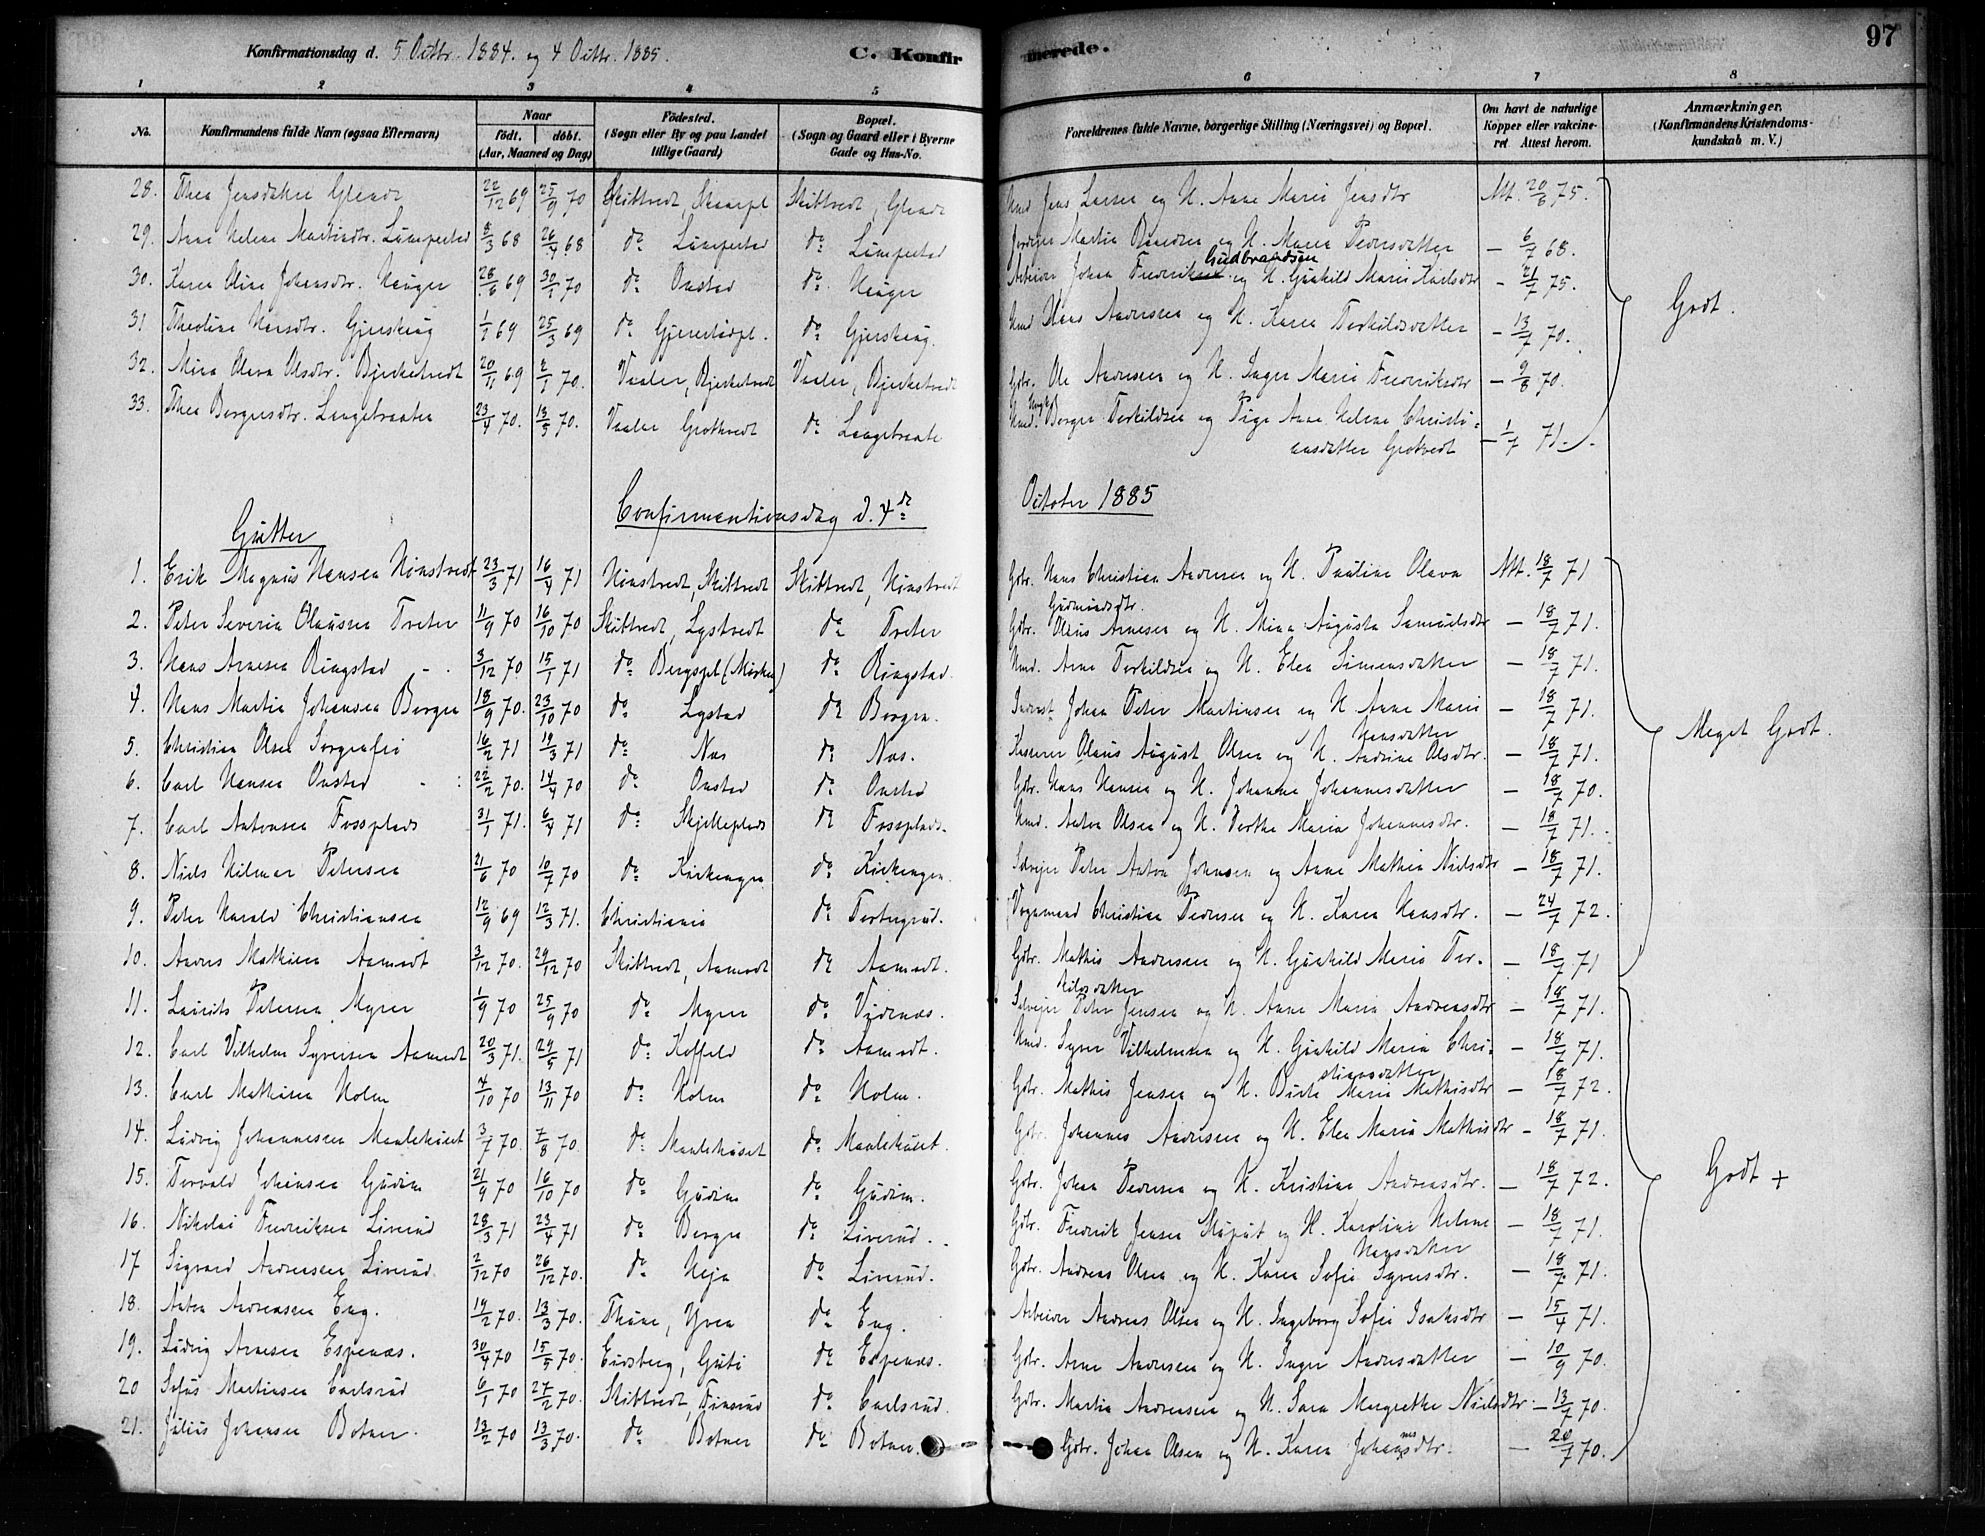 Konfirmationsdag d. 5 Octbr. 1884. og 4 Octbr. 1885. C. Konfirmerede. 97
1 2 3 4 5 6 7 8
No. Konfirmandens fulde Navn (ogsaa Efternavn) Naar födt. döbt. (Aar, Maaned og Dag) Födested. (Sogn eller By og paa Landet tillige Gaard) Bopæl. (Sogn og Gaard eller i Byerne Gade og Hus-No. Forældrenes fulde Navne, borgerlige Stilling (Næringsvei) og Bopæl. Om havt de naturlige Kopper eller vakcineret. Attest herom. Anmærkninger. (Konfirmandens Kristendomskundskab m. V.)
28. Thea Jensdatter Glende 22/12 69 25/9 70 Skittvedt, Skittvedt, Glende Jens Larsen og H. Anne Marie Jensdtr Att. 20/6 75.
29. Anne Helene Martinsdtr. Lumpestad 8/3 68 26/4 68 do Lumpestad do Lumpestad Martin og H. Maren Pedersdatter – 6/7 68.
30. Karen Oline Johansdtr. Hauger 28/6 69 30/1 70 do Onstad do Hauger Arbeider Johan Fredriksen Gudbrandsen og H. Gunhild Marie Karlsdtr – 21/7 75. Godt.
31 Theoline Hansdtr. Gjershaug 1/1 69 25/3 69 do do Gjershaug. Hmd Hans Andersen og H. Karen Torkildsdatter – 13/7 70.
32. Mina Olava Olsdtr. Bjerketvedt 20/11 69 2/1 70. Vaaler, Bjerketvedt Vaaler, Bjerketvedt Gbr. Ole Andersen og H. Inger Marie Fredriksdtr – 9/8 70.
33. Thea Borgersdtr. Langebraaten 23/4 70. 13/3 70. Vaaler Grottvedt do Langebraate Ungk. Borger Torkildsen og Pige Anne Helene Christiansdatter Grotvedt – 1/7 71.
Confirmentionsdag d. 4de October 1885
Gutter
1. Erik Magnus Hansen Hønstvedt 23/3 71 16/4 71 Hønstvedt, Skittvedt Skittvedt, Hønstvedt Gbr. Hans Christian Andersen og H. Pauline Olava Gudmundsdtr. Att. 18/7 71
2. Peter Severin Olaussen Treter 11/9 70 16/10 70 Skittvedt, Lystvedt do Treter Gbr. Olaus Arnesen og H. Mina Augusta Samuelsdtr – 18/7 71.
3. Hans Arnesen Ringstad 3/12 70 15/1 71 do Bergspl (Mørken) do Ringstad. Hmd. Arne Torkildsen og H. Elen Simensdatter – 18/7 71.
4. Hans Martin Johansen Borgen 18/9 70. 23/10 70 do Lystad do Borgen. Inderst Johan Peter Martinsen og H. Anne Marie Hansdatter – 18/7 71.
5. Christian Olsen Sorgenfri 16/2 71 19/3 71 do Næs do Næs. Olaus August Olsen og H. Andrine Olsdtr. – 18/7 71.
6. Carl Hansen Onstad 22/2 70. 14/4 70 do Onstad do Onsted Gbr. Hans Hansen og H. Johanne Johannesdatter – 18/7 70.
7. Carl Antonsen Fossplads 31/1 71. 6/4 71 do Skjelleplads do Fossplads. Hmd. Anton Olsen og H. Berthe Maria Johannesdtr. – 18/7 71.
8. Niels Hilmar Petersen 21/6 70 10/7 70 do Kirkengen do Kirkengen. Selvejer Peter Anton Johnsen og Anne Mathea Nielsdtr – 18/7 71.
9. Peter Harald Christiansen 12/9 69 12/3 71. Christiania do Tortugrud. Vognmand Christian Pedersen og H. Karen Hansdtr. – 24/7 72.
10. Anders Mathisen Aamodt 3/12 70. 29/12 70 Skittvedt, Aamodt do Aamodt. Gbr. Mathis Andersen og H. Gunhild Marie Torkilsdatter – 18/7 71
Meget Godt.
11. Laurits Petersen Myrer 1/9 70 25/9 70 do Myrer do Videnæs. Selvejer Peter Jensen og H. Anne Maria Andreasdtr – 18/7 71.
12. Carl Vilhelm Syversen Aamodt 20/3 71. 29/5 71 do Koffeld do Aamodt. Hmd. Syver Vilhelmsen og H. Gunhild Maria Christiansdatter – 18/7 71.
13. Carl Mathisen Holm 4/10 70 13/11 70 do Holm do Holm. Gbr. Mathis Jensen og H. Berte Maria Mathisdtr – 18/7 72.
14. Ludvig Johannesen Maalehuset 3/7 70. 7/8 70. do Maalehuset do Maalehuset. Gbr. Johannes Andersen og H. Elen Maria Mathisdtr – 18/7 71.
15. Torvald Johansen Gudim 21/9 70 16/10 70 do Gudim do Gudim. Gbr. Johan Pedersen og H. Kristine Andreasdtr. – 18/7 72. Godt +
16. Nikolai Fredriksen Liverud 28/3 71 23/4 71 do Borgen do Liverud. Gbr. Fredrik Jensen og H. Karoline Helene Hansdatter – 18/7 71.
17 Sigvard Andreasen Liverud 2/12 70 26/12 70. do Heja do Liverud. Gbr. Andreas Olsen og H. Karen Sofie Syversdtr. – 18/7 71.
18. Anton Andreassen Eng. 19/2 70. 13/3 70. Thune, Yven do Eng. Arbeider Andreas Olsen og H. Ingeborg Sofie Isaksdtr – 15/4 71.
19. Ludvig Arnesen Espenæs. 30/4 70 15/5 70. Eidsberg, do Espenæs. Gbr. Arne Andersen og H. Inger Andersdatter – 10/9 70.
20 Sofus Martinsen Carlsrud 6/1 70 27/2 70. Skittvedt, Finsrud do Carlsrud. Gbr. Martin Andreassen og H. Sara Margrethe Nielsdtr – 13/7 70.
21. Julius Johansen Botner. 13/2 70 13/3 70. do Botner do Botner. Gbr. Johan Olsen og H. Karen Johannesdtr. – 20/7 70.